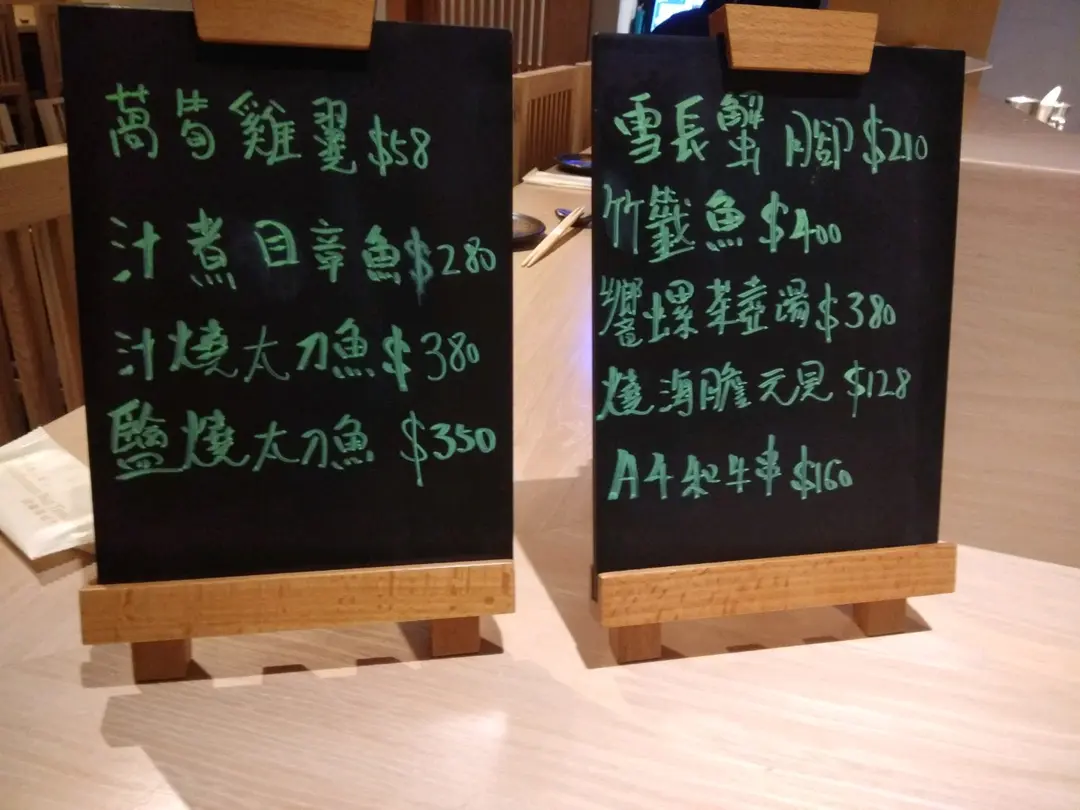 萵荀雞翼 $58
汁煮目章魚 $280
汁燒太刀魚 $380
鹽燒太刀魚 $350
雪長蟹腳 $210
竹籤魚 $400
響螺茶壺湯 $380
燒海膽元貝 $128
A4和牛串 $160